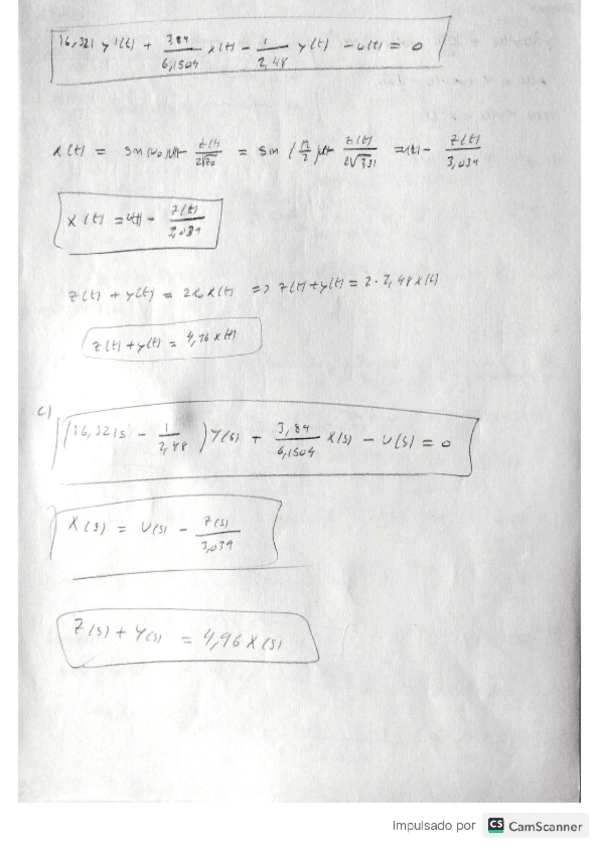 16,321 y'(t) + 3,84/6,1504 x(t) - 1/2,48 y(t) - u(t) = 0
x(t) = sin(w₀)u(t) - z(t)/2√z₀ = sin(π/2)u(t) - z(t)/2√2,31 = u(t) - z(t)/3,039
x(t) = u(t) - z(t)/3,039
z(t) + y(t) = 2x₀x(t) => z(t) + y(t) = 2·2,48x(t)
z(t) + y(t) = 4,96 x(t)
c)
(16,321s - 1/2,48) Y(s) + 3,84/6,1504 X(s) - U(s) = 0
X(s) = U(s) - Z(s)/3,039
Z(s) + Y(s) = 4,96 X(s)
Impulsado por CS CamScanner